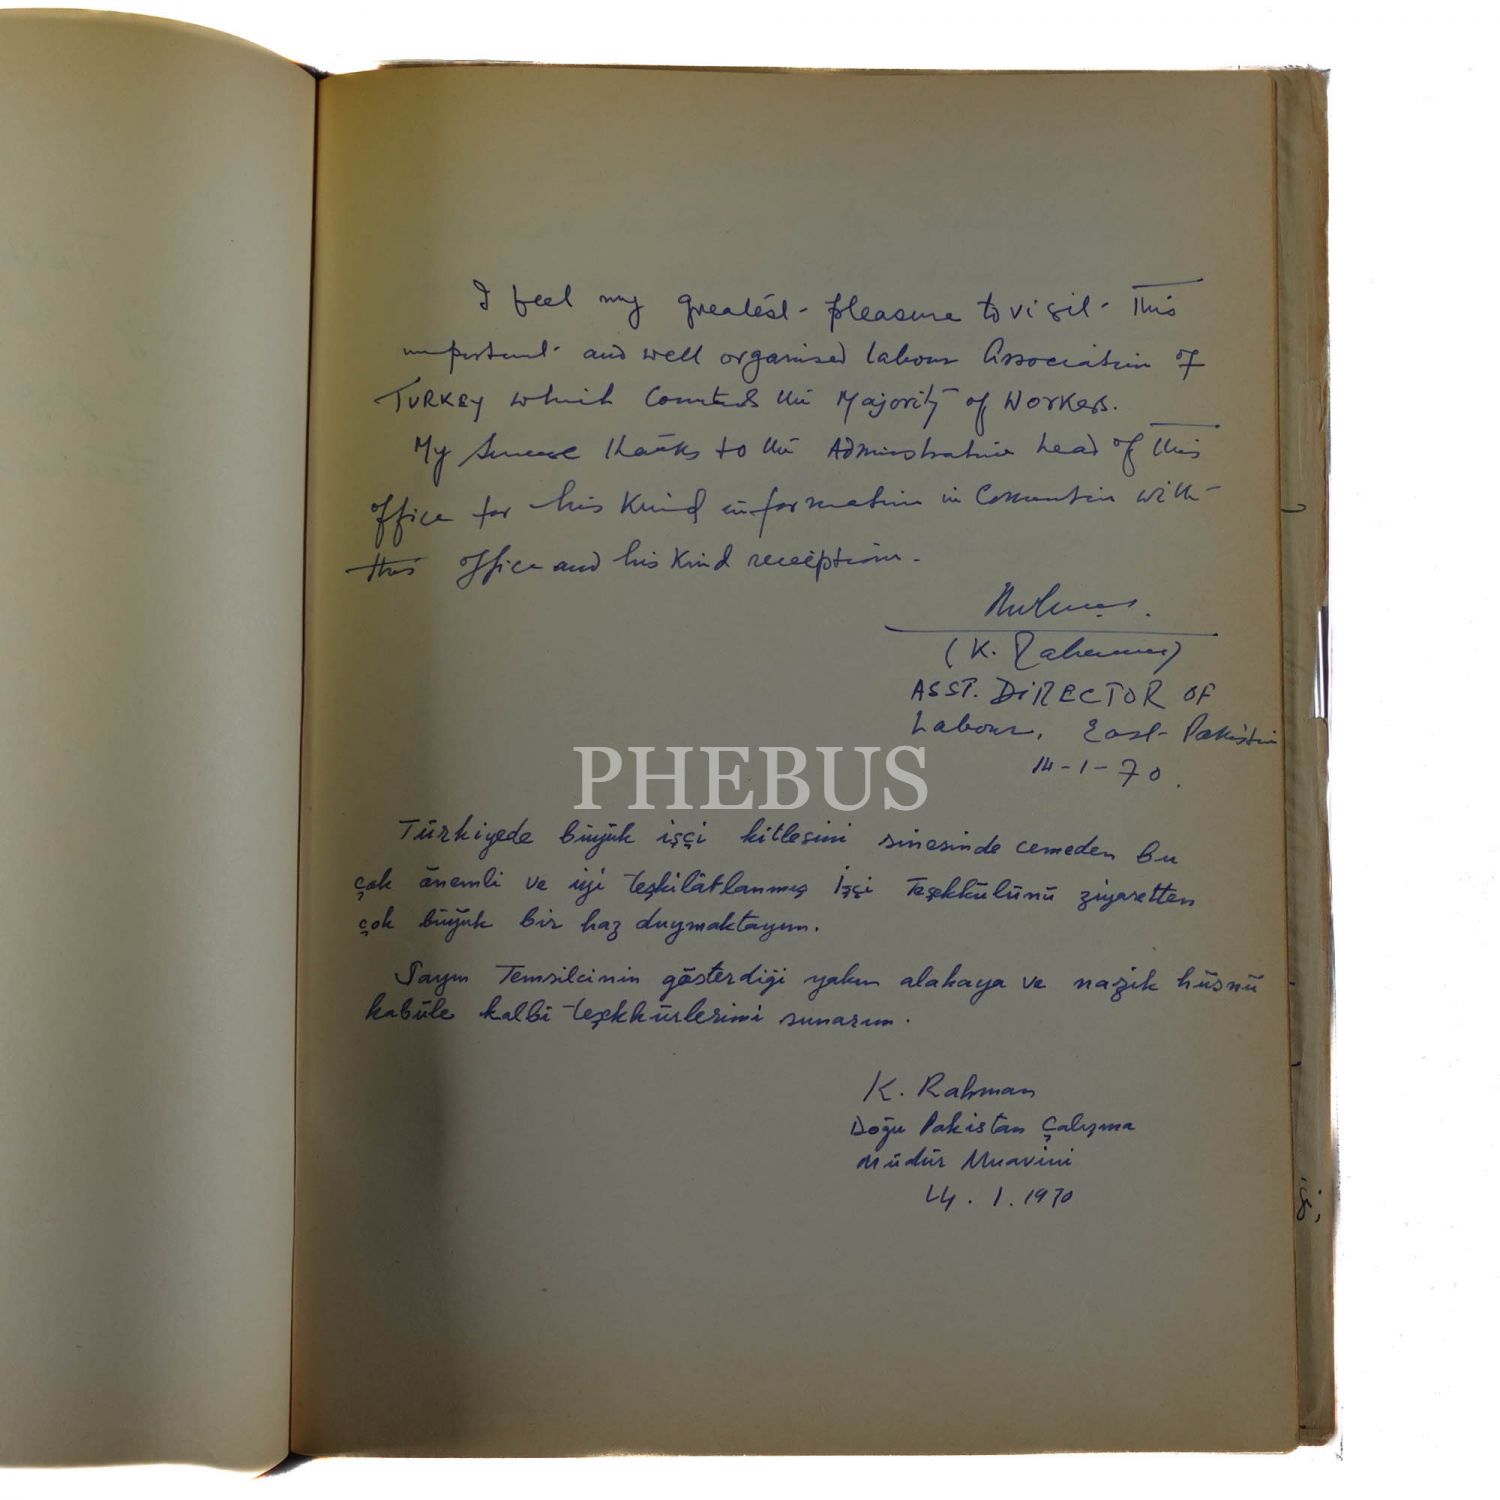 I feel my greatest pleasure to visit This
important and well organised labour Association of
TURKEY which Controls the Majority of Workers.
My Sincere thanks to the Administrative head of This
office for his Kind information in Connection with
this office and his Kind reception.
(K. Rahman)
ASST. DIRECTOR OF
Labour, East Pakistan
14-1-70.
PHEBUS
Türkiyede büyük işçi kitlesini sinesinde cemeden bu
çok önemli ve iyi teşkilâtlanmış İşçi Teşekkülünü ziyaretten
çok büyük bir haz duymaktayım.
Sayın Temsilcinin gösterdiği yakın alakaya ve nazik hüsnü
kabüle kalbi teşekkürlerimi sunarım.
K. Rahman
Doğu Pakistan Çalışma
Müdür Muavini
14.1.1970